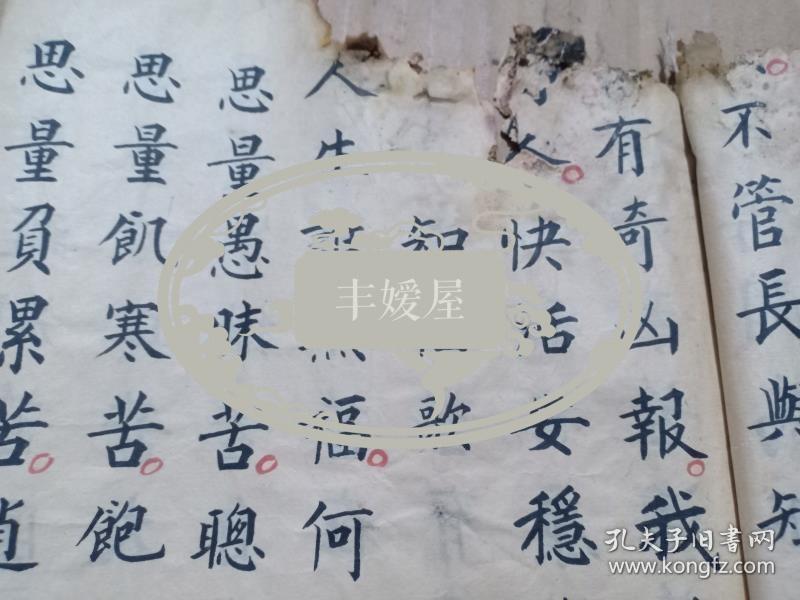 不管長與短
有奇凶報我
人快活安穩
知 歌
人生 無福何
思量愚昧苦聰
思量飢寒苦飽
思量負累苦追
丰嫒屋
孔夫子旧书网
www.kongfz.com